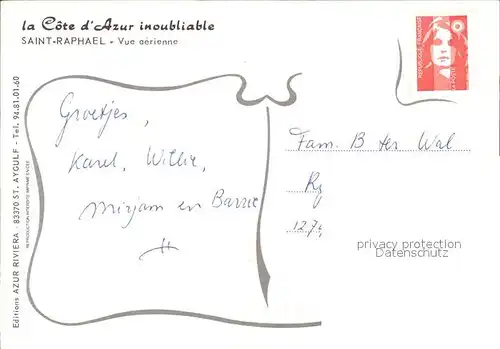 la Côte d'Azur inoubliable
SAINT-RAPHAEL - Vue aérienne
REPUBLIQUE FRANÇAISE
LA POSTE
Groetjes,
Karel, Willie,
Mirjam en Barrie
Fam. B ter Wal
127
privacy protection
Datenschutz
Editions AZUR RIVIERA - 83370 ST. AYGULF - Tel. 94.81.01.60